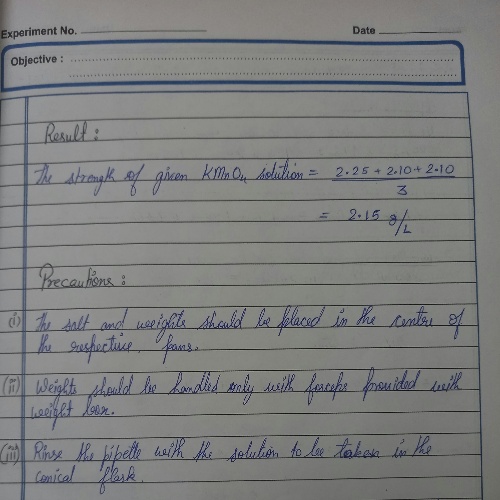 Experiment No. Date
Objective :
Result :
The strength of given KMnO₄ solution = 2.25 + 2.10 + 2.10 / 3
= 2.15 g/L
Precautions :
(i) The salt and weights should be placed in the centre of
the respective pans.
(ii) Weights should be handled only with forceps provided with
weight box.
(iii) Rinse the pipette with the solution to be taken in the
conical flask.